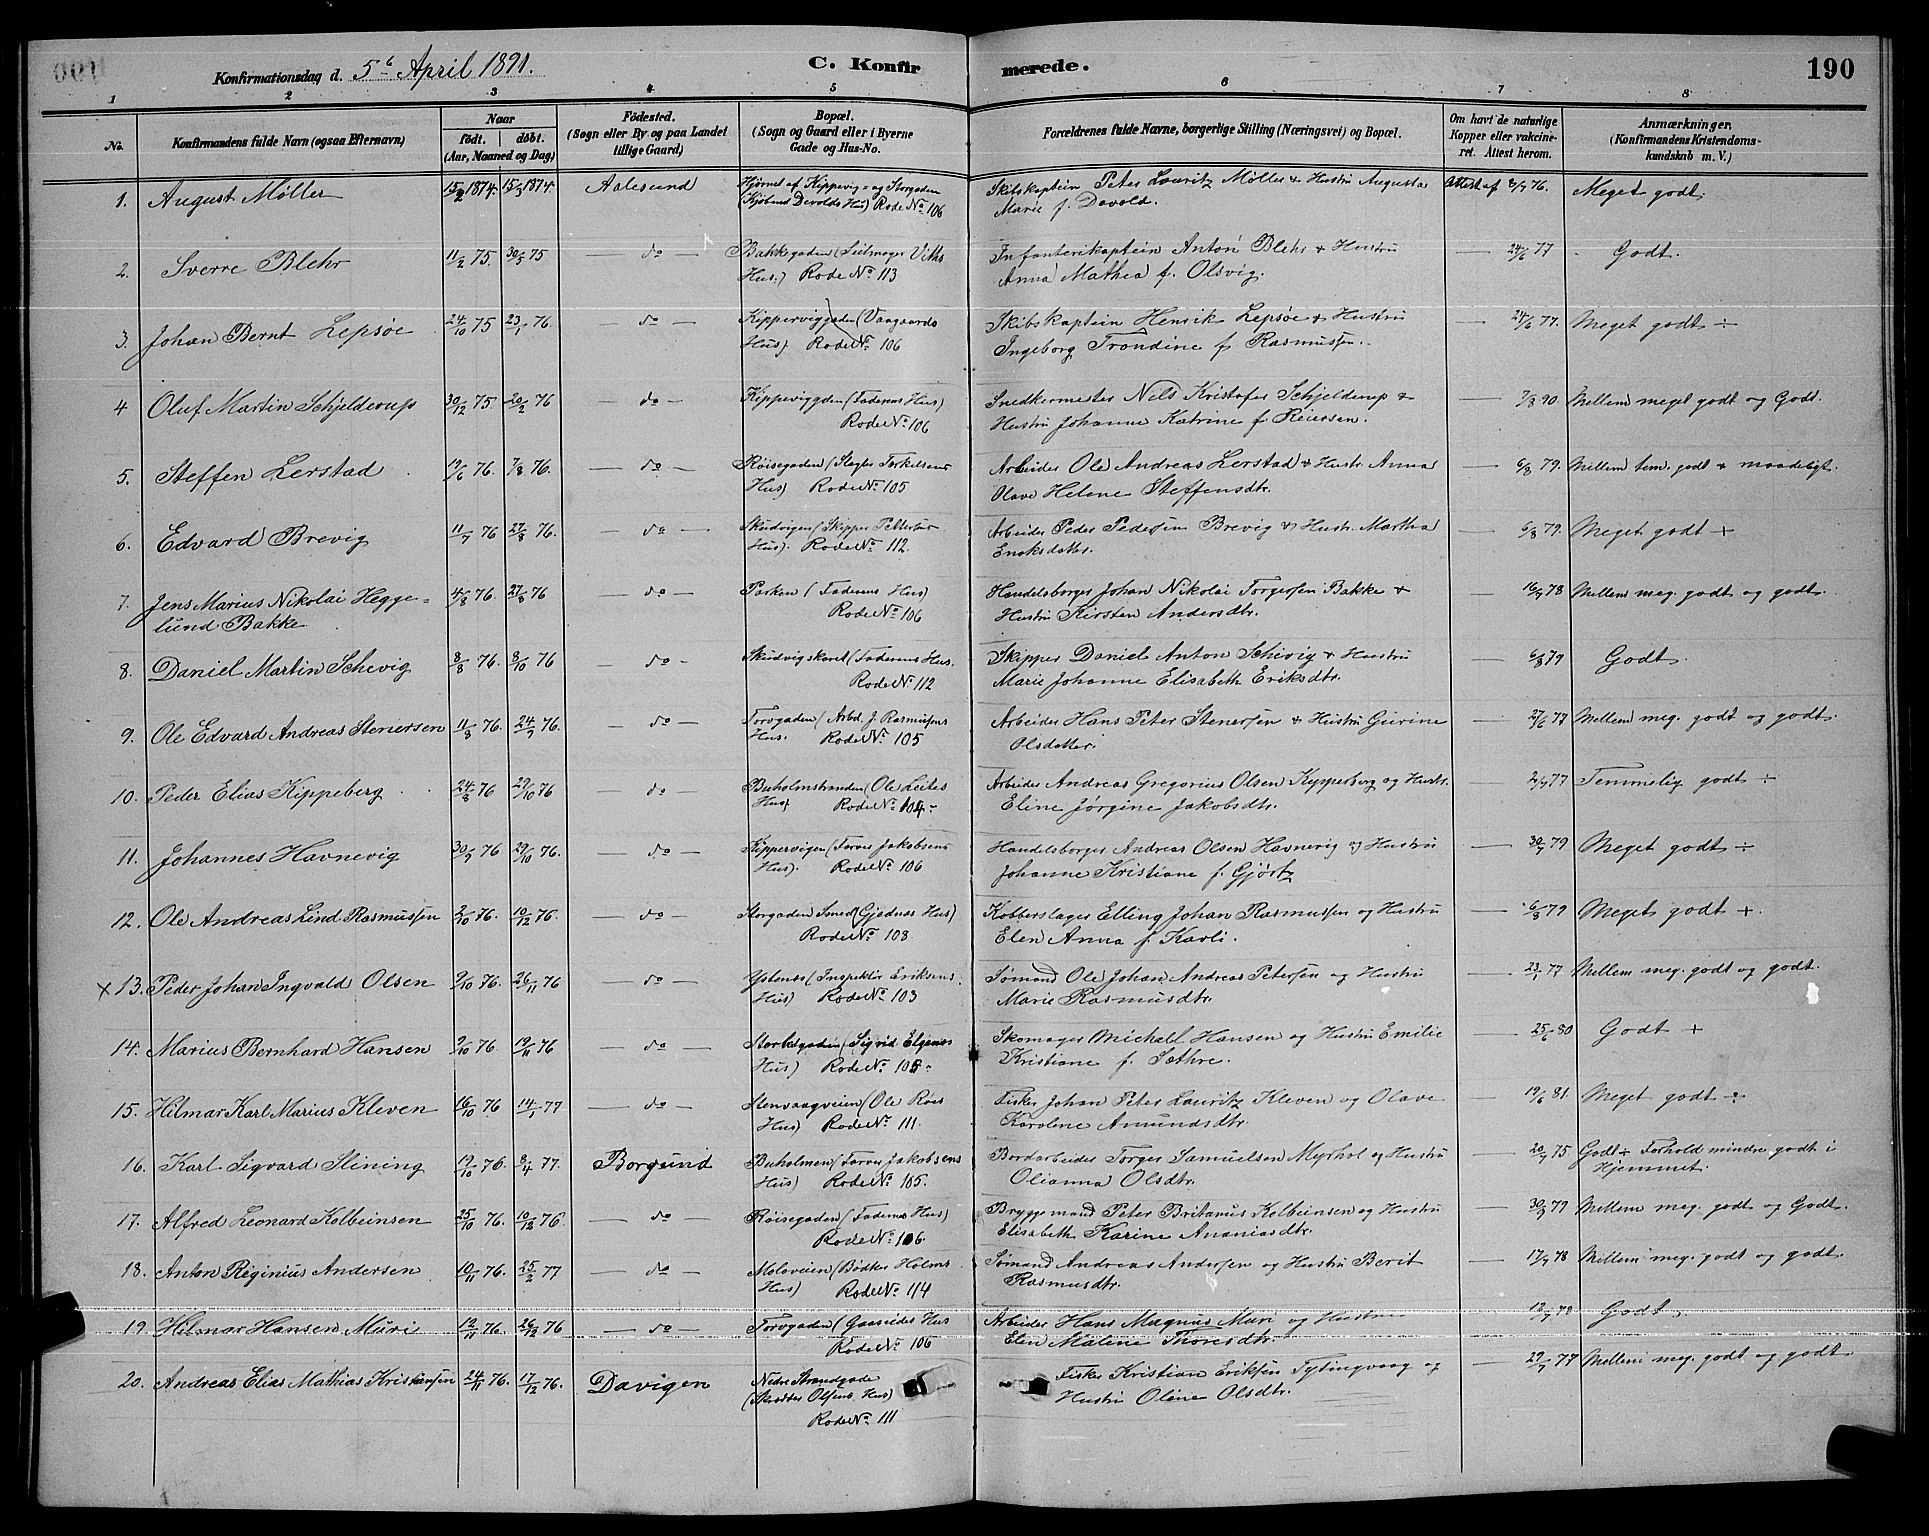 Konfirmationsdag d. 5te April 1891.
C. Konfirmerede.
190
1 2 3 4 5 6 7 8
No.
Konfirmandens fulde Navn (ogsaa Efternavn)
Naar
født. døbt.
(Aar, Maaned og Dag)
Fødested.
(Sogn eller By og paa Landet
tillige Gaard)
Bopæl.
(Sogn og Gaard eller i Byerne
Gade og Hus-No.
Forældrenes fulde Navne, borgerlige Stilling (Næringsvei) og Bopæl.
Om havt de naturlige
Kopper eller vakcine-
ret. Attest herom.
Anmærkninger.
(Konfirmandens Kristendoms-
kundskab m. V.)
1. August Møller 15/2 1874. 15/3 1874. Aalesund Hjørnet af Kippevig- og Storgaden Skibskaptein Peter Lauritz Møller & Hustru Augusta Attest af 8/7 76. Meget godt.
(Kjøbmd Devolds Hus) Rode No 106 Marie f. Devold.
2. Sverre Blehr 11/2 75. 30/5 75 — do — Bakkegaden (Leilmager Viths Infanterikaptein Anton Blehr & Hustru — 24/6 77 Godt.
Hus.) Rode No 113 Anna Mathea f. Olsvig.
3. Johan Bernt Lepsøe 24/10 75 23/1 76. — do — Kipperviggaden (Vaagaards Skibskaptein Henrik Lepsøe & Hustru — 24/6 77. Meget godt ÷
Hus) Rode No 106 Ingeborg Trondine f. Rasmussen.
4 Oluf Martin Schjelderup 30/12 75. 20/2 76 — do — Kippeviggden (Faderens Hus) Snedkermester Nels Kristofer Schjelderup & — 7/8 90. Mellem meget godt og Godt.
Rode No 106 Hustru Johanne Katrine f. Reiersen.
5. Steffen Lerstad 19/6 76. 7/8 76. — do — Røisegaden (Slagter Torkelsens Arbeider Ole Andreas Lerstad & Hustr. Anna — 6/8 79. Mellem tem. godt & maadeligt.
Hus) Rode No 105 Olave Helene Steffensdtr.
6. Edvard Brevig 11/7 76 27/8 76. — do — Skudvigen (Skipper Pettersens Arbeider Peder Pedersen Brevig & Hustr. Martha — 6/8 79. Meget godt +
Hus). Rode No 112. Enoksdatter.
7. Jens Marius Nikolai Hegge- 4/8 76. 27/8 76 — do — Parken (Faderens Hus) Handelsborger Johan Nikolai Torgersen Bakke & — 16/9 78 Mellem meg. godt og godt.
lund Bakke Rode No 106 Hustru Kirsten Andersdtr.
8. Daniel Martin Schevig 8/8 76. 8/10 76 — do — Skudvigskaret (Faderens Hus. Skipper Daniel Anton Schivig & Hustru — 6/8 79 Godt.
Rode No 112 Marie Johanne Elisabeth Eriksdtr.
9. Ole Edvard Andreas Stenersen 11/8 76. 24/9 76. — do — Torvgaden (Arbd. J. Rasmusens Arbeider Hans Peter Stenersen & Hustru Gurine — 27/6 77 Mellem meg. godt og godt.
Hus. Rode No 105 Olsdatter.
10. Peder Elias Kippeberg 24/8 76 29/10 76 — do — Buholmstranden (Ole Leites Arbeider Andreas Gregorius Olsen Kypperberg og Hustr. — 2/7 77 Temmelig godt ÷
Hus) Rode No 104 Eline Jørgine Jakobsdtr.
11. Johannes Havnevig 30/9 76 29/10 76. — do — Kippervigen (Torris Jakobsens Handelsborger Andreas Olsen Havnevig og Hustru — 30/7 79 Meget godt ÷
Hus). Rode No 106 Johanne Kristiane f. Gjørtz
12. Ole Andreas Lind Rasmussen 2/10 76. 10/12 76. — do — Storgaden Smed (Gjednæs Hus) Kobberslager Elling Johan Rasmussen og Hustru — 6/8 79 Meget godt +.
Rode No 108 Elen Anna f. Karli.
x 13. Peder Johan Ingvald Olsen 9/10 76. 26/11 76 — do — Ystenes (Inspektør Eriksens Sømand Ole Johan Andreas Petersen og Hustru — 23/1 77 Mellem meg. godt og godt.
Hus) Rode No 103 Marie Rasmusdtr.
14. Marius Bernhard Hansen 9/10 76. 19/11 76 — do — Storkegaden (Sigrid Elgenæs Skomager Michall Hansen og Hustru Emilie — 25/6 80 Godt +
Hus) Rode No 105 Kristiane f. Sæthre.
15. Hilmar Karl Marius Kleven 16/10 76 14/1 77 — do — Stenvaagveien (Ole Roes Fisker Johan Peter Lauritz Kleven og Olave — 19/6 81. Meget godt ÷
Hus) Rode No 111. Karoline Amundsdtr.
16. Karl Sigvard Slining 19/10 76. 8/4 77. Borgund Buholmen (Torris Jakobsens Bordarbeider Torger Samuelsen Myrhol og Hustru — 20/7 75 Godt ÷ Forhold mindre godt i
Hus) Rode No 105. Olianna Olsdtr. Hjemmet.
17. Alfred Leonard Kolbeinsen 25/10 76. 10/12 76. — do — Røisegaden (Faderens Hus) Bryggemand Peter Britanus Kolbeinsen og Hustru — 30/7 79 Mellem meg. godt og Godt.
Rode No 106. Elisabeth Karine Ananiasdtr.
18. Anton Reginius Andersen 10/11 76. 25/2 77 — do — Moloveien (Bødker Holms Sømand Andreas Andersen og Hustru Berit — 17/9 78 Mellem meg. godt og godt.
Hus) Rode No 114 Rasmusdtr.
19. Hilmar Hansen Muri 12/11 76. 26/12 76 — do — Torvgaden (Gaaseides Hus Arbeider Hans Magnus Muri og Hustru — 12/9 78 Godt.
Rode No 106 Elen Malene Thoresdtr.
20. Andreas Elias Mathias Kristiansen 24/11 76. 17/12 76. Davigen Nedre Strandgade Fisker Kristian Eriksen Tytingvaag og — 29/5 77 Mellem meg. godt og godt.
(Skrædder Olsens Hus) Hustru Oline Olsdtr.
Rode No 111